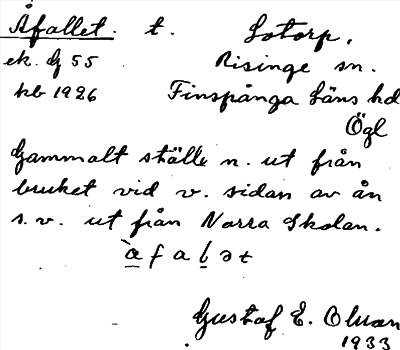 Åfallet. t. Lotorp.
ek. G 55 Risinge sn.
kb 1926 Finspånga Läns hd
Ögl
Gammalt ställe n. ut från
bruket vid v. sidan av ån
s.v. ut från Norra Skolan.
àfabət
Gustaf E. Olsson
1933